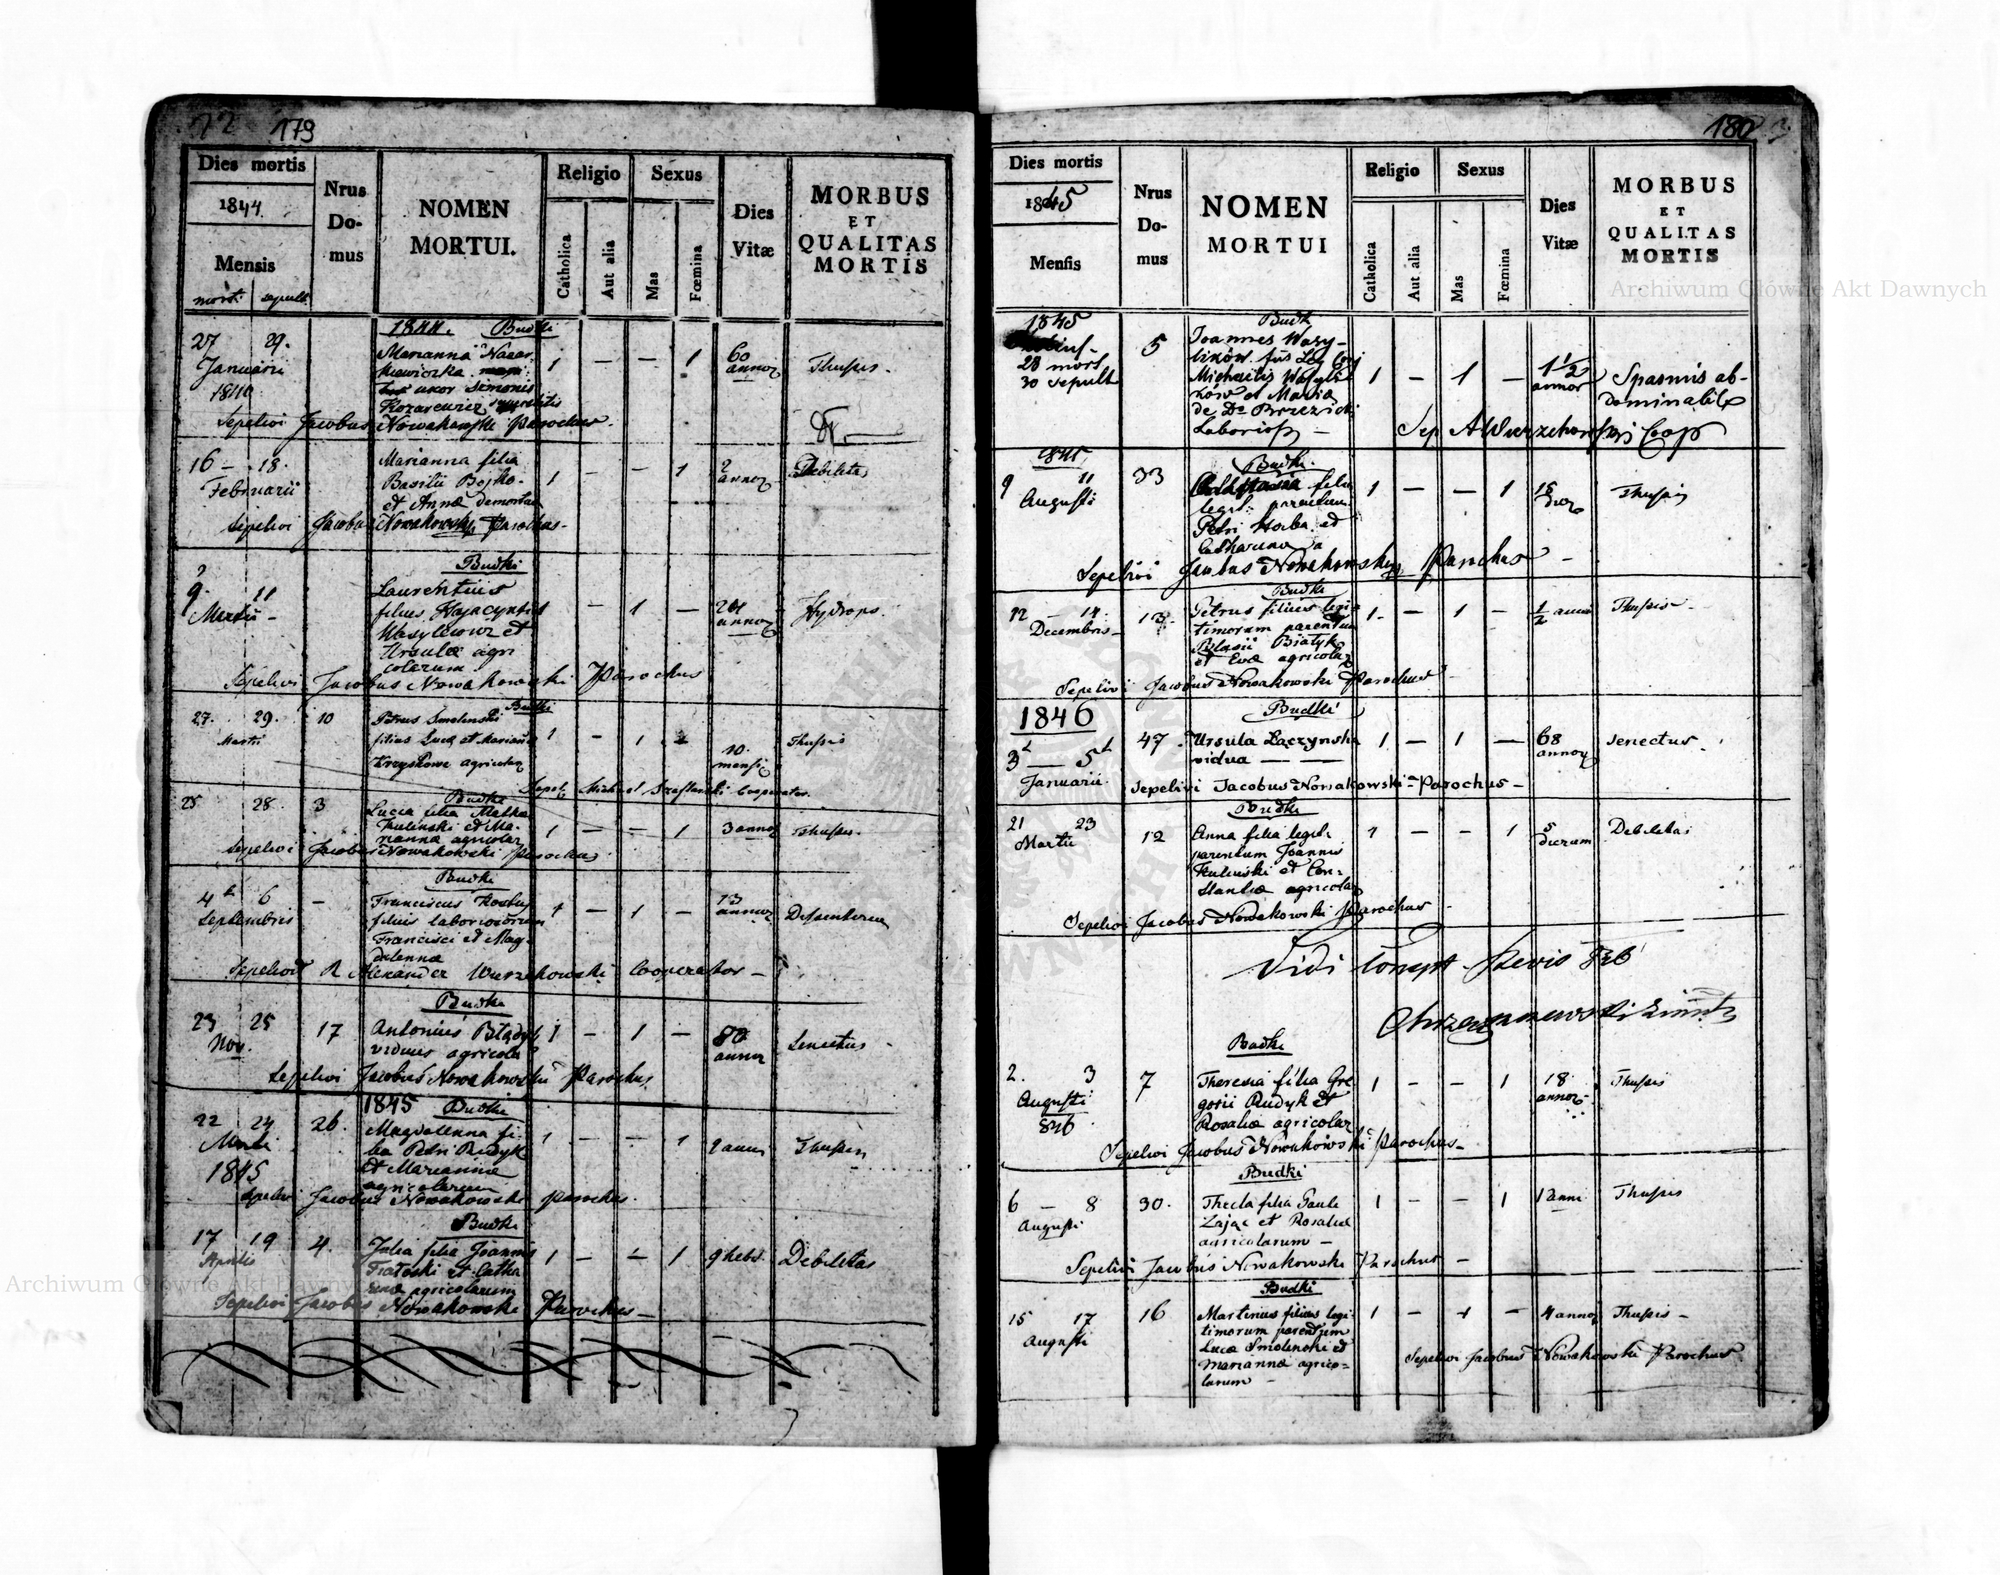 179
Dies mortis
1844
Mensis
mort. sepult.
Nrus
Do-
mus
NOMEN
MORTUI.
Religio
Catholica
Aut alia
Sexus
Mas
Fœmina
Dies
Vitæ
MORBUS
ET
QUALITAS
MORTIS
1844. Budki
27 29.
Januarii
Marianna
uxor Simonis
1 — — 1
60
annor
Thussis.
Sepelivi Jacobus Nowakowski Parochus
16 — 18.
Februarii
Marianna filia
Basilii Bojko
et Annæ
1 — — 1
2
annor
Debilitas
Sepelivi Jacobus Nowakowski Parochus
Budki
9. 11
Martii
Laurentius
filius Hyacynthi
Wasylewicz et
Ursulæ agri
colarum
1 — 1 —
annor
Hydrops
Sepelivi Jacobus Nowakowski Parochus
Budki
27. 29. 10
Martii
Petrus Smolenski
filius Lucæ et Mariannæ
agricolar
1 — 1
10.
mensi
Thussis
Sepel. Michael Cooperator
Budki
25 28. 3
Lucia filia
Kulinski et Ma-
rianna agricolar
1 — — 1
3 annor
Thussis.
Sepelivi Jacobus Nowakowski Parochus
Budki
4 6 —
Septembris
Franciscus
filius laboriosorum
Francisci et Mag-
dalenna
1 — 1 —
13
annor
Dissenteria
Sepelivit R Alexander Wurzchowski Cooperator —
Budki
23 25 17
Nov.
Antonius
viduus agricola
1 — 1 —
80
annor
Senectus
Sepelivi Jacobus Nowakowski Parochus
1845 Budki
22 24 26.
1845
Magdalenna fi-
lia Petri Rudyk
et Marianna
agricolarum
1 — — 1
Thussis
Sepelivi Jacobus Nowakowski Parochus.
Budki
17 19 4.
Aprilis
Julia filia Joannis
et Catha
renæ agricolarum
1 — — 1
9 hebd.
Debilitas
Sepelivi Jacobus Nowakowski Parochus —
180
Dies mortis
1845
Mensis
Nrus
Do-
mus
NOMEN
MORTUI
Religio
Catholica
Aut alia
Sexus
Mas
Fœmina
Dies
Vitæ
MORBUS
ET
QUALITAS
MORTIS
1845
28 mort
30 sepult
5
Budk
Joannes Wasy-
lików
Michaelis Wasyli
ków et Maria
de Do Brzezicki
1 — 1 —
1 1/2
annor
Spasmis ab-
dominalib
Sep A Wurzchowski Coop
1845
Budki.
9 11 33
Augusti
filia
legit. parentum
Petri et
Catharina
1 — — 1
15
Thussis
Sepelivi Jacobus Nowakowski Parochus —
Budki
12 — 14. 13.
Decembris
Petrus filius legi
timorum parentum
Blasii Białyk
et Evæ agricolar
1 — 1 —
1/2 anni
Thussis
Sepelivi Jacobus Nowakowski Parochus
1846
Budki
3 — 5 47
Januarii
Ursula Łaczynska
vidua — —
1 — 1 —
68
annor
Senectus.
Sepelivi Jacobus Nowakowski Parochus —
Budki
21 23 12
Martii
Anna filia legit.
parentum Joannis
Kulinski et Con-
stantiæ agricolar
1 — — 1
5
dierum
Debilitas
Sepelivi Jacobus Nowakowski Parochus
Vidi
Budki
2. 3 7
Augusti
846
Theresia filia Gre
gorii Rudyk et
Rosaliæ agricolar
1 — — 1
18
annor
Thussis
Sepelivi Jacobus Nowakowski Parochus —
Budki
6 — 8 30.
Augusti
Thecla filia Pauli
Zając et Rosaliæ
agricolarum —
1 — — 1
1 anni
Thussis
Sepelivi Jacobus Nowakowski Parochus —
Budki
15 17 16
Augusti
Martinus filius legi
timorum parentum
Lucæ Smolenski et
Mariannæ agrico-
larum —
1 — 1 —
4 annor
Thussis —
Sepelivi Jacobus Nowakowski Parochus
Archiwum Główne Akt Dawnych
Archiwum Główne Akt Dawnych